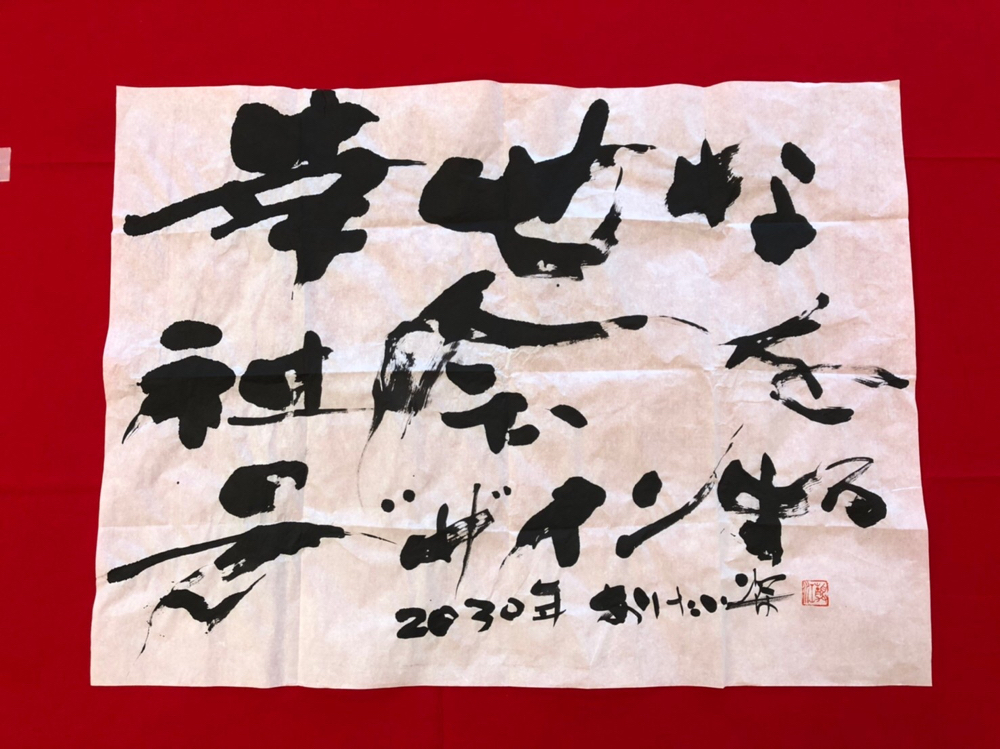 幸せな
社会を
デザインする
2030年 ありたい姿